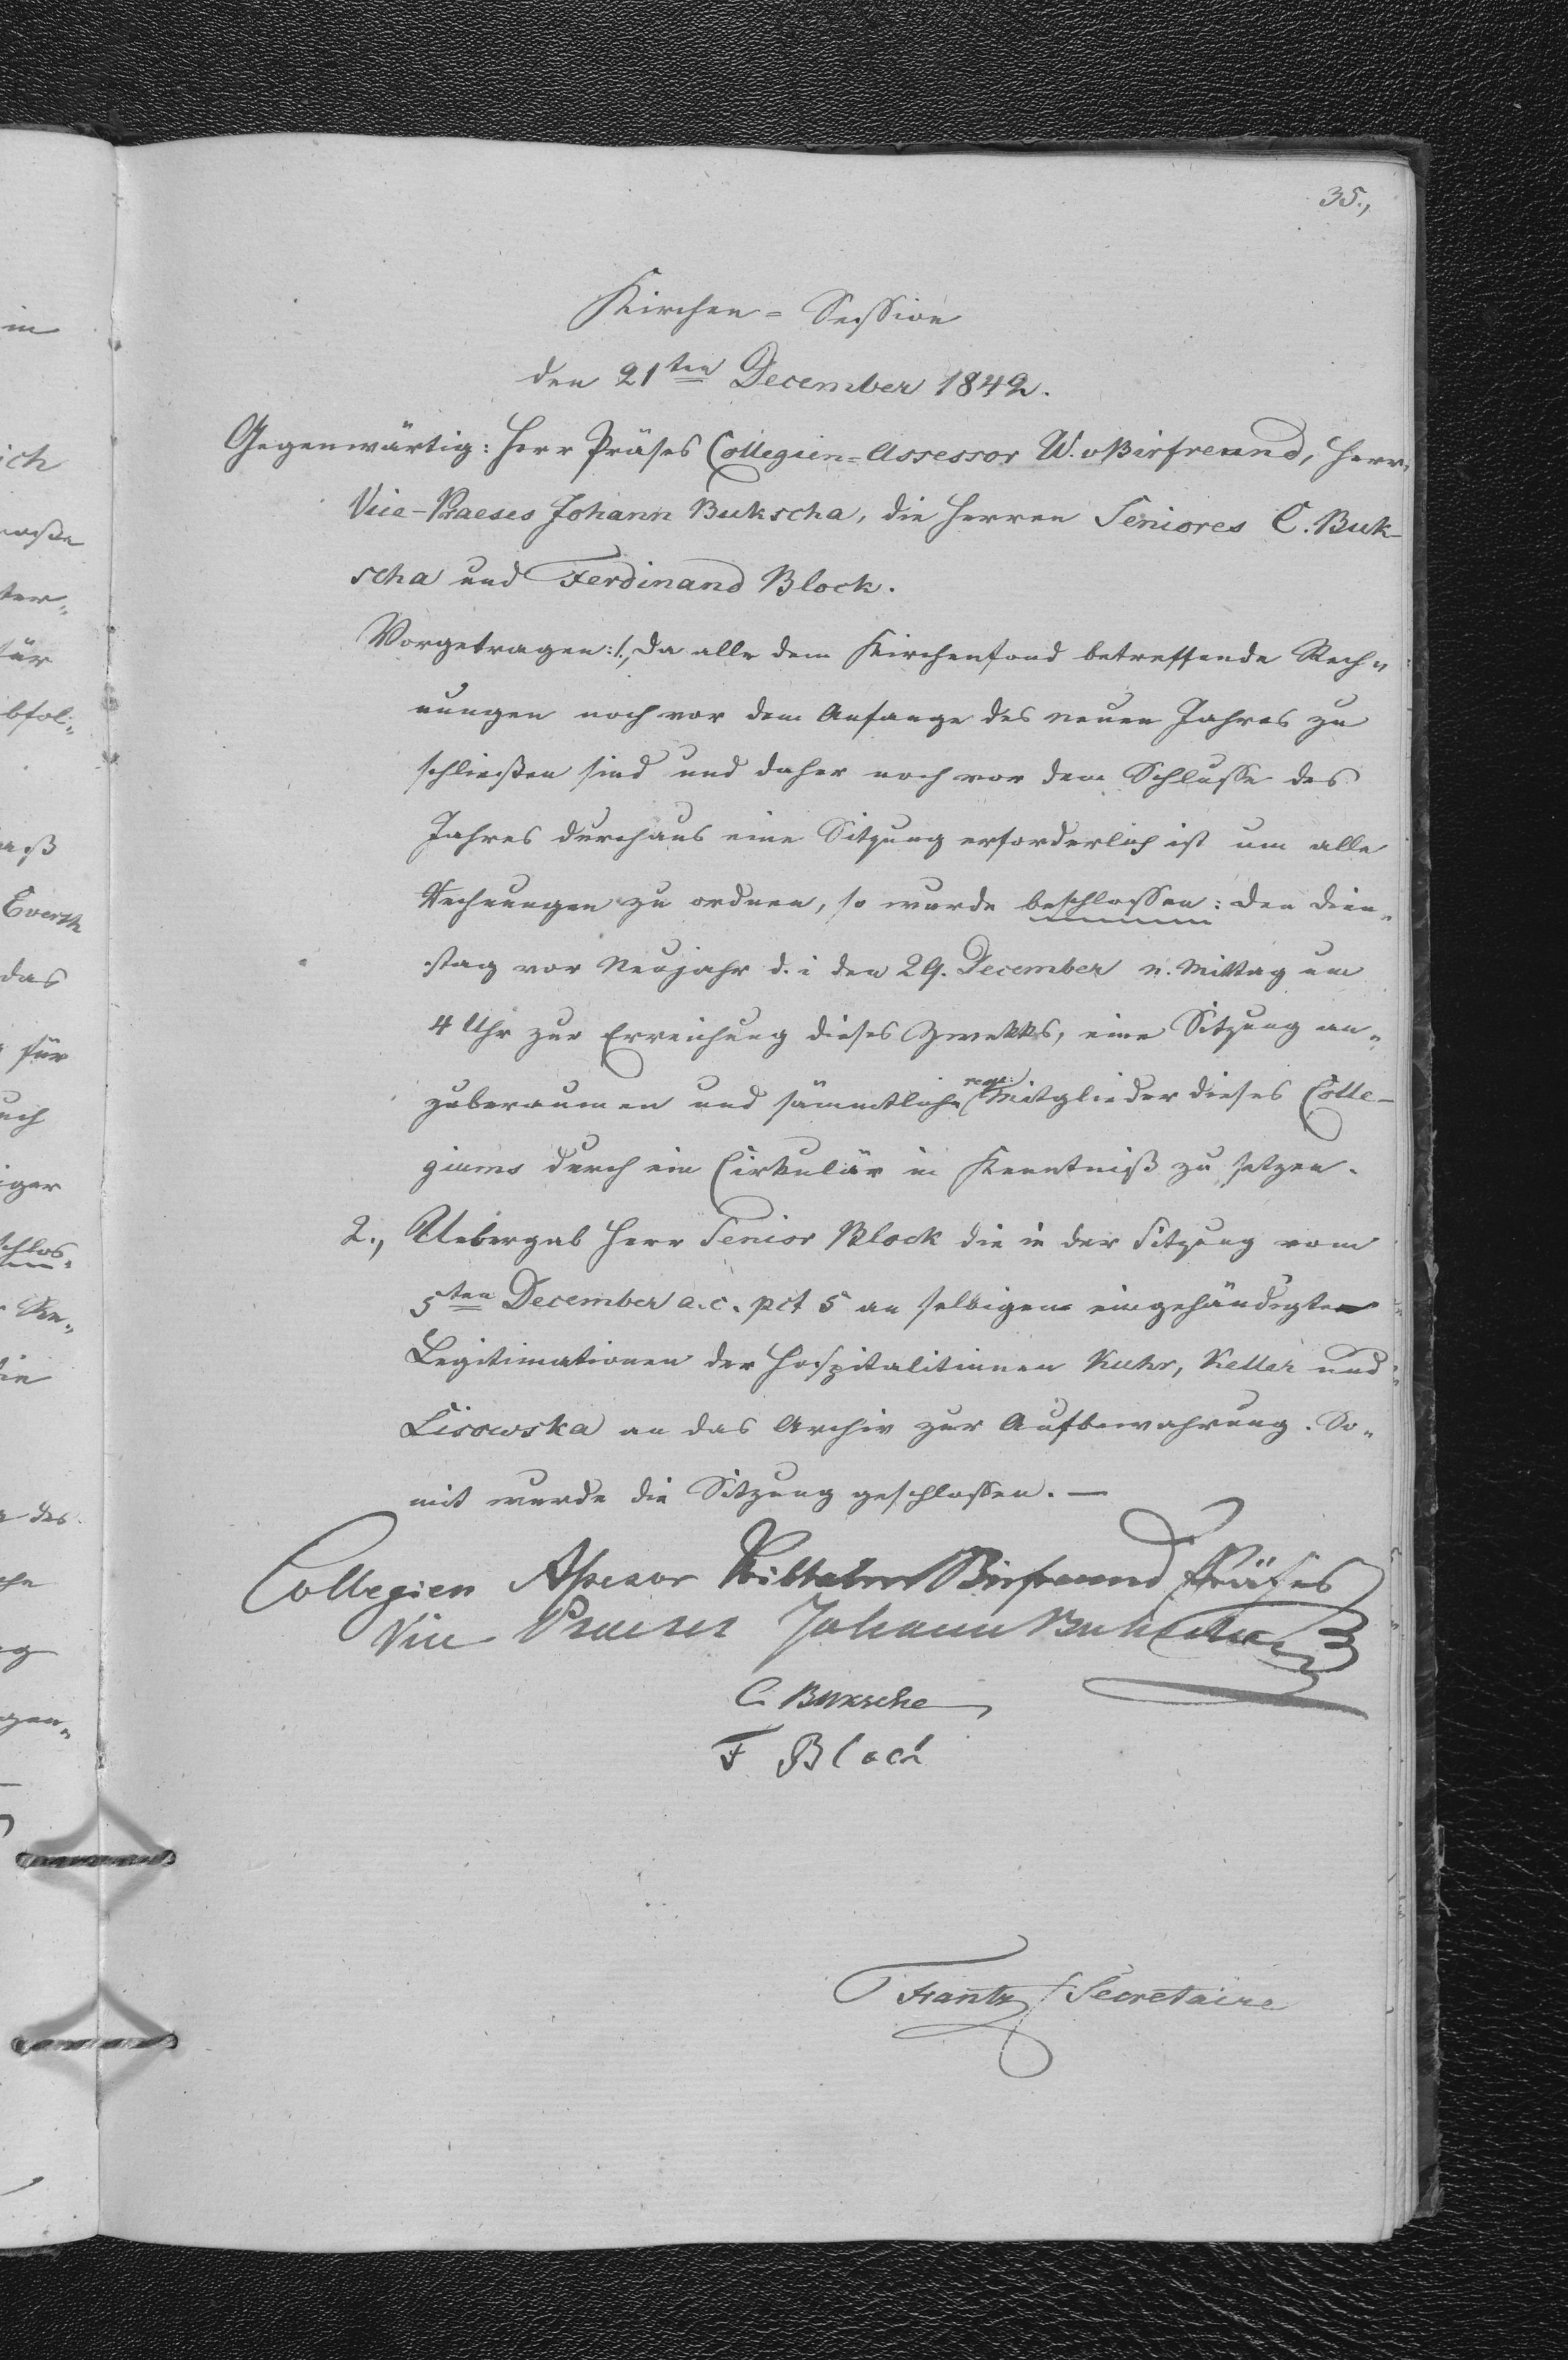 35.,
Kirchen = Session
den 21ten December 1842.
Gegenwärtig: Herr Präses Collegien=Assessor W. v Birfreund, Herr
Vice-Praeses Johann Bukscha, die Herren Seniores C. Buk-
scha und Ferdinand Block.
Vorgetragen: 1., Da alle dem Kirchenfond betreffende Rech=
nungen noch vor dem Anfange des neuen Jahres zu
schließen sind und daher noch vor dem Schlusse des
Jahres durchaus eine Sitzung erforderlich ist um alle
Rechnungen zu ordnen, so wurde beschlossen: den Dien=
stag vor Neujahr d. i den 29. December n. Mittag um
4 Uhr zur Erreichung dieses Zwekks, eine Sitzung an=
zuberaumen und sämmtliche Mitglieder dieses Colle-
giums durch ein Cirkulär in Kenntniß zu setzen.
2., Uebergab Herr Senior Block die in der Sitzung vom
5ten December a. c. pct 5 an selbigen eingehändigten
Legitimationen der Hospitalitinnen Kuhr, Keller und
Lisowska an das Archiv zur Aufbewahrung. So=
mit wurde die Sitzung geschlossen. —
Collegien Assesor Wilhelm Birfreund Präses
Vice Praeses Johann Bukscha
C. Bukscha
F Block
Frantz Secretaire
in
ich
ter=
für
bfol=
Everth
das
für
uch
iger
schlos=
des
gen=